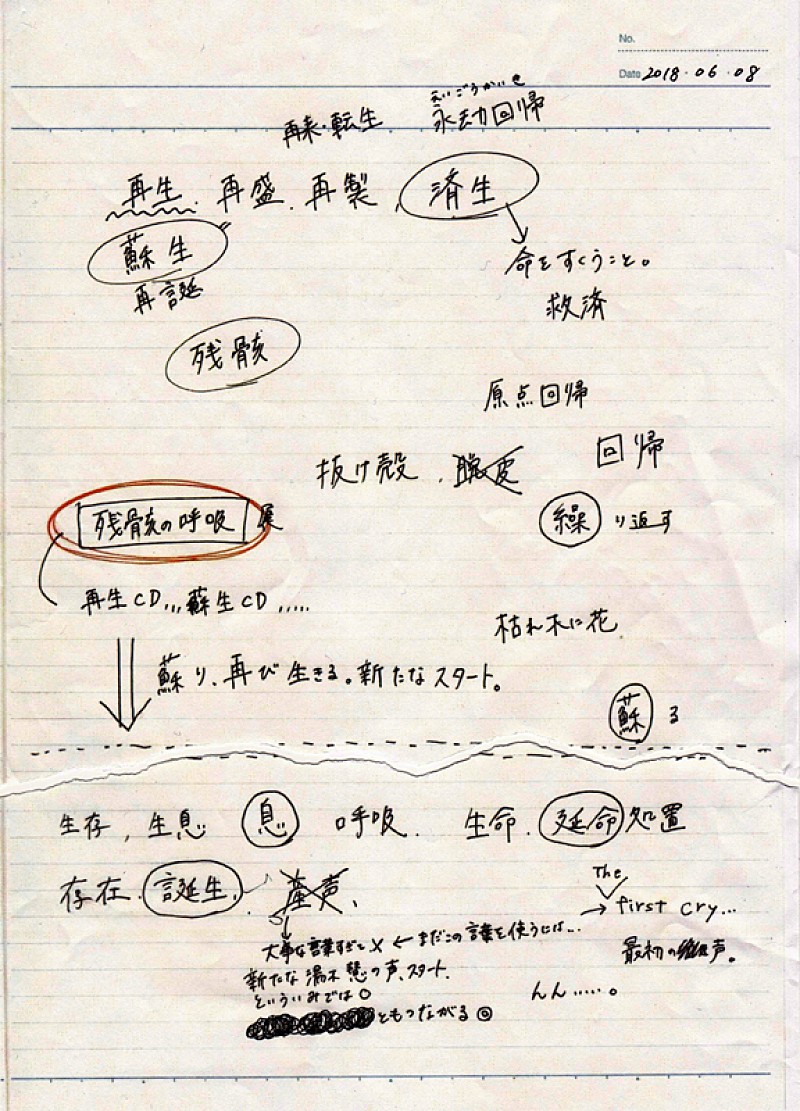 No.
Date 2018・06・08
えいごうかいき
再来・転生 永劫回帰
再生、再盛、再製、済生
蘇生
命をすくうこと。
再誕
救済
残骸
原点回帰
回帰
抜け殻、脱皮
残骸の呼吸 展
繰り返す
再生CD...蘇生CD.....
枯れ木に花
蘇り、再び生きる。新たなスタート。
蘇る
生存、生息 息 呼吸、生命、延命処置
存在、誕生、産声、
The
→ first cry...
大事な言葉すぎて× ← まだこの言葉を使うには...
最初の産声。
新たな湯木慧の声、スタート、
といういみでは○
んん......。
ともつながる◎